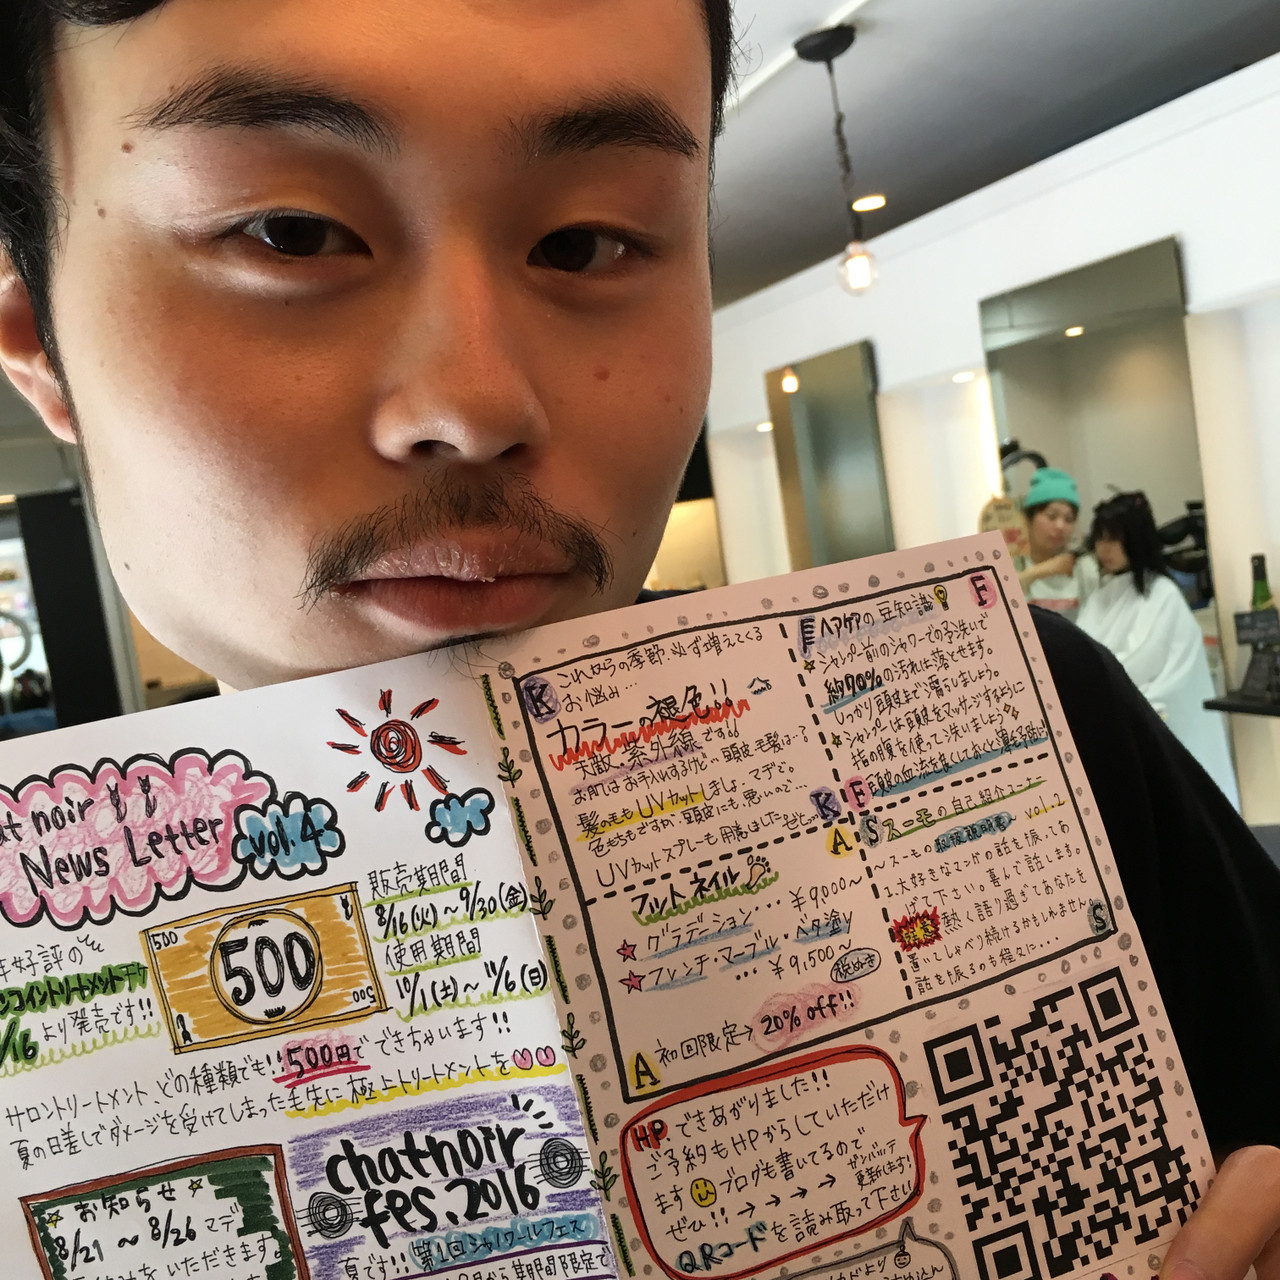 at noir
News Letter
vol.4
年好評の
ンコイントリートメントチケ
/16より発売です!!
500
500
500
販売期間
8/16(火)～9/30(金)
使用期間
10/1(土)～11/6(日)
サロントリートメント、どの種類でも!!500円でできちゃいます!!
夏の日差しでダメージを受けてしまった毛先に極上トリートメントを
お知らせ
8/21～8/26マデ
をいただきます。
chatnoir
fes.2016
夏です!!第1回シャノワールフェス
月から期間限定で
K
これからの季節、必ず増えてくる
お悩み…
カラーの褪色!!
天敵、紫外線です。。
お肌はお手入れするけど…頭皮毛髪は…?
髪の毛もUVカットしましょ。マデで。
色もちもですが、頭皮にも悪いので…
UVカットスプレーも用意しました。ぜひ…
K
A
フットネイル
グラデーション… ¥9,000～
フレンチ・マーブル・ベタ塗り
… ¥9,500～
税ぬき
初回限定→20% off!!
A
F
ヘアケアの豆知識
シャンプー前のシャワーでの予洗いで
約70%の汚れは落とせます。
しっかり頭皮まで濡らしましょう。
シャンプーは頭皮をマッサージするように
指の腹を使って洗いましょう
頭皮の血流を良くしておくと薄毛予防に
F
S
スーモの自己紹介コーナー
vol.2
～スーモの取扱説明書～
1.大好きなマンガの話を振ってあ
げて下さい。喜んで話します。
熱く語り過ぎてあなたを
置いてしゃべり続けるかもしれません。
話を振るのも程々に…
S
HP できあがりました!!
ご予約もHPからしていただけ
ます ブログも書いてるので
ぜひ!!→→→
ガンバッテ
更新します!
QRコードを読み取って下さい